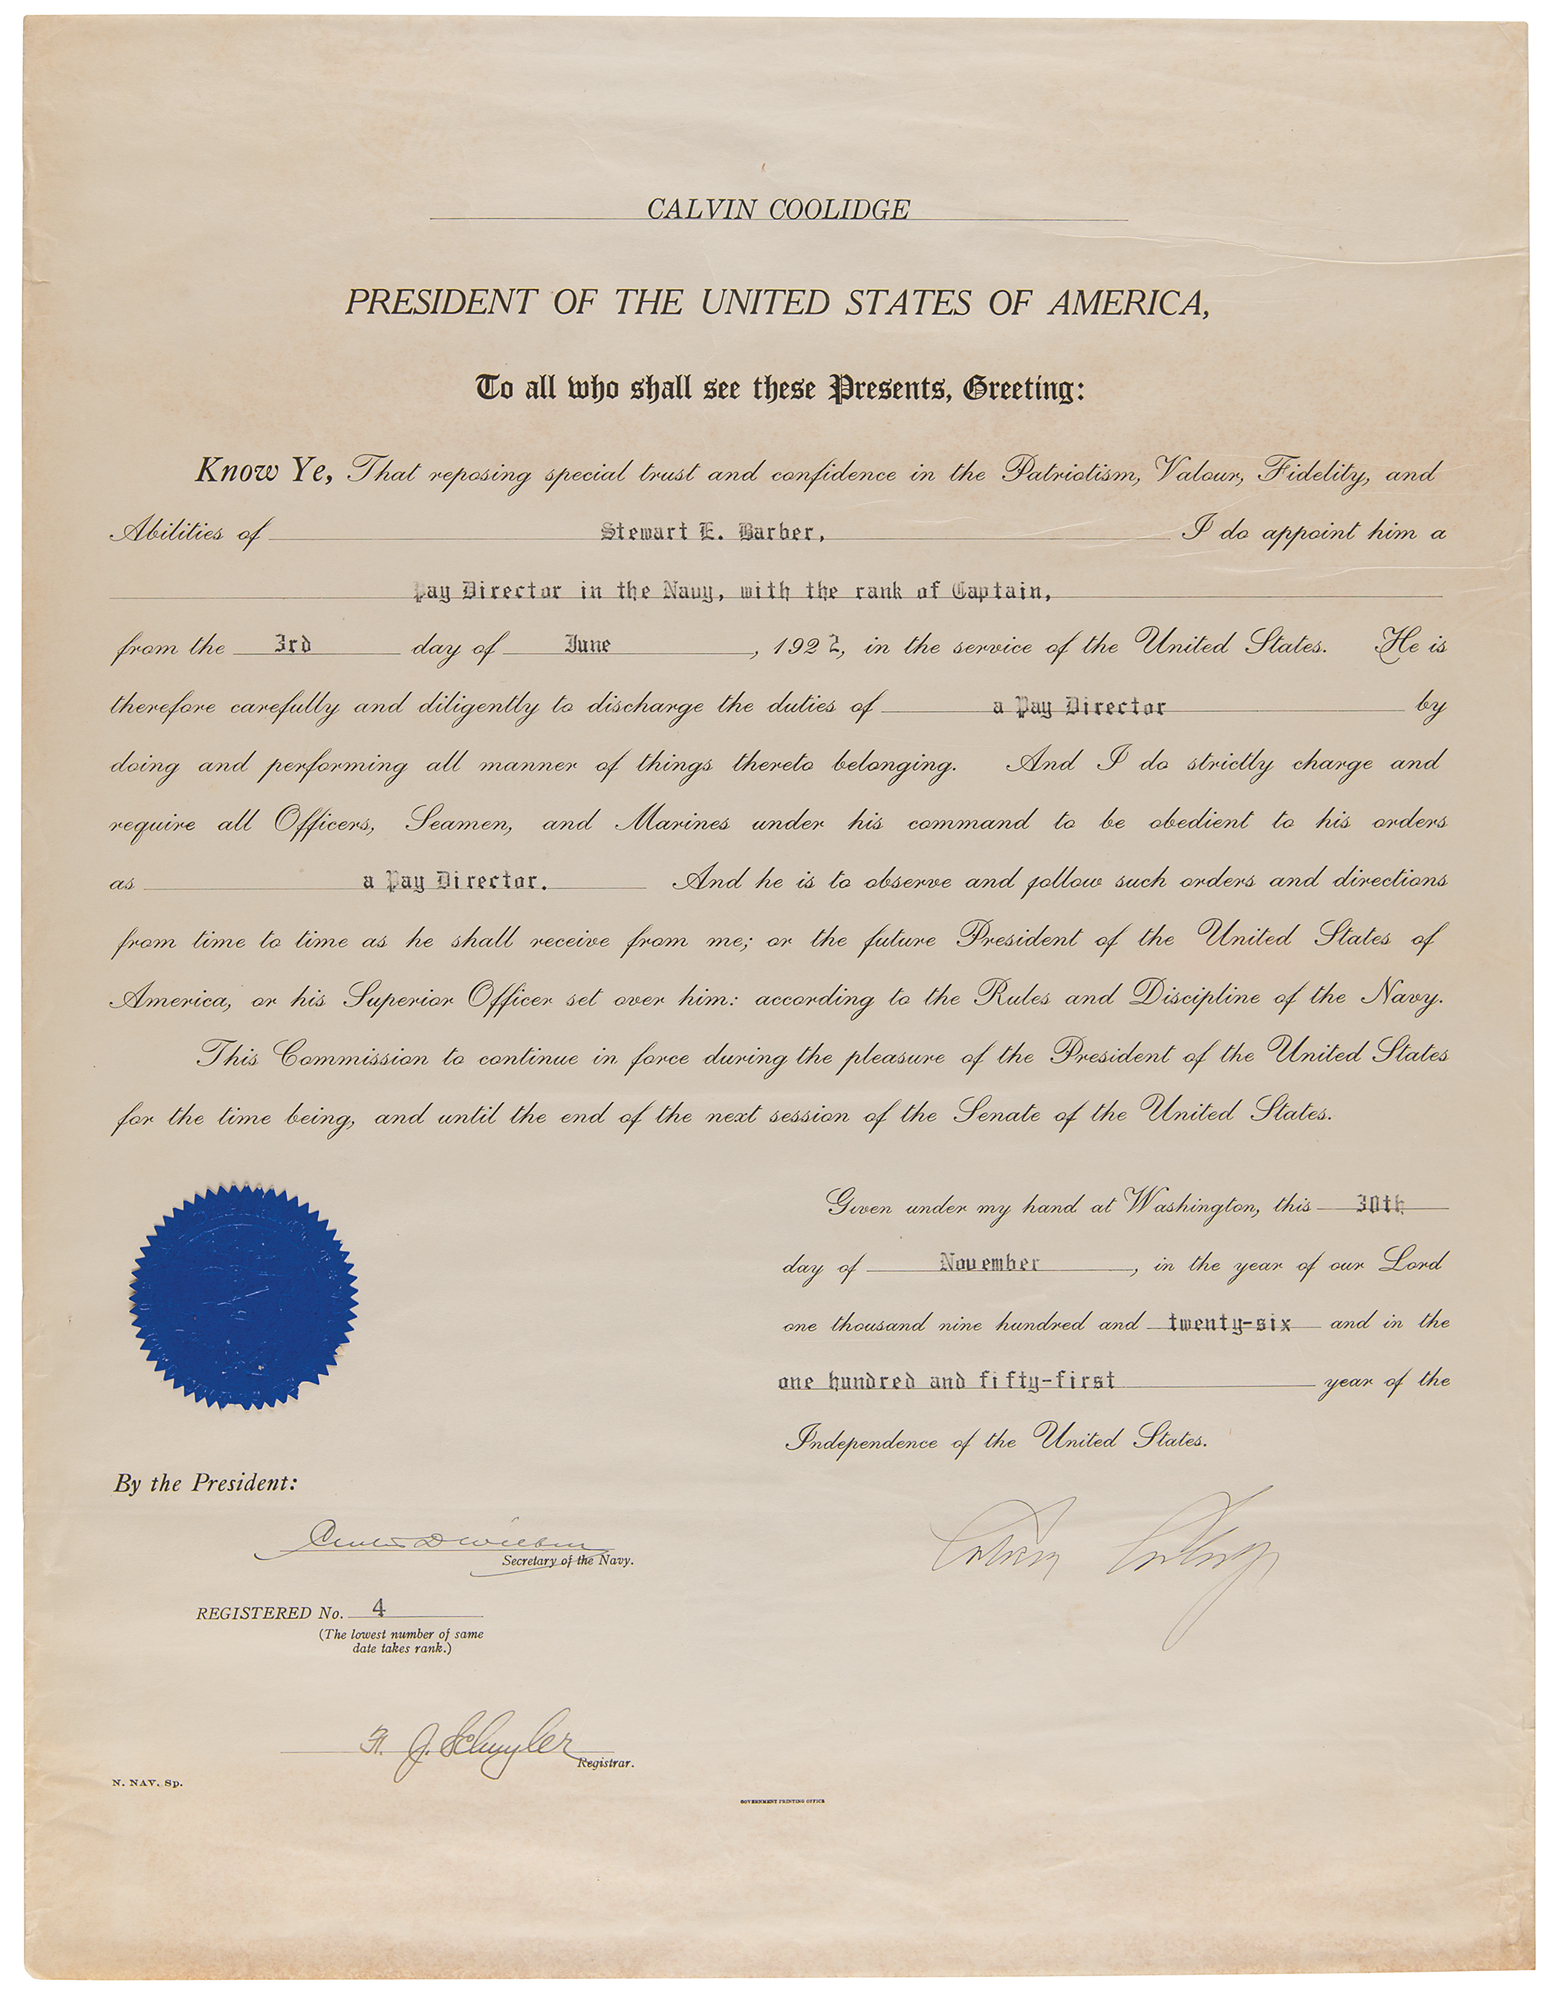 CALVIN COOLIDGE
PRESIDENT OF THE UNITED STATES OF AMERICA,
To all who shall see these Presents, Greeting:
Know Ye, That reposing special trust and confidence in the Patriotism, Valour, Fidelity, and
Abilities of Stewart E. Barber, I do appoint him a
Pay Director in the Navy, with the rank of Captain,
from the 3rd day of June, 1922, in the service of the United States. He is
therefore carefully and diligently to discharge the duties of a Pay Director by
doing and performing all manner of things thereto belonging. And I do strictly charge and
require all Officers, Seamen, and Marines under his command to be obedient to his orders
as a Pay Director. And he is to observe and follow such orders and directions
from time to time as he shall receive from me; or the future President of the United States of
America, or his Superior Officer set over him: according to the Rules and Discipline of the Navy.
This Commission to continue in force during the pleasure of the President of the United States
for the time being, and until the end of the next session of the Senate of the United States.
Given under my hand at Washington, this 30th
day of November, in the year of our Lord
one thousand nine hundred and twenty-six and in the
one hundred and fifty-first year of the
Independence of the United States.
By the President:
Calvin Coolidge
Curtis D Wilbur
Secretary of the Navy.
REGISTERED No. 4
(The lowest number of same
date takes rank.)
H. J. Schuyler
Registrar.
N. NAV. Sp.
GOVERNMENT PRINTING OFFICE